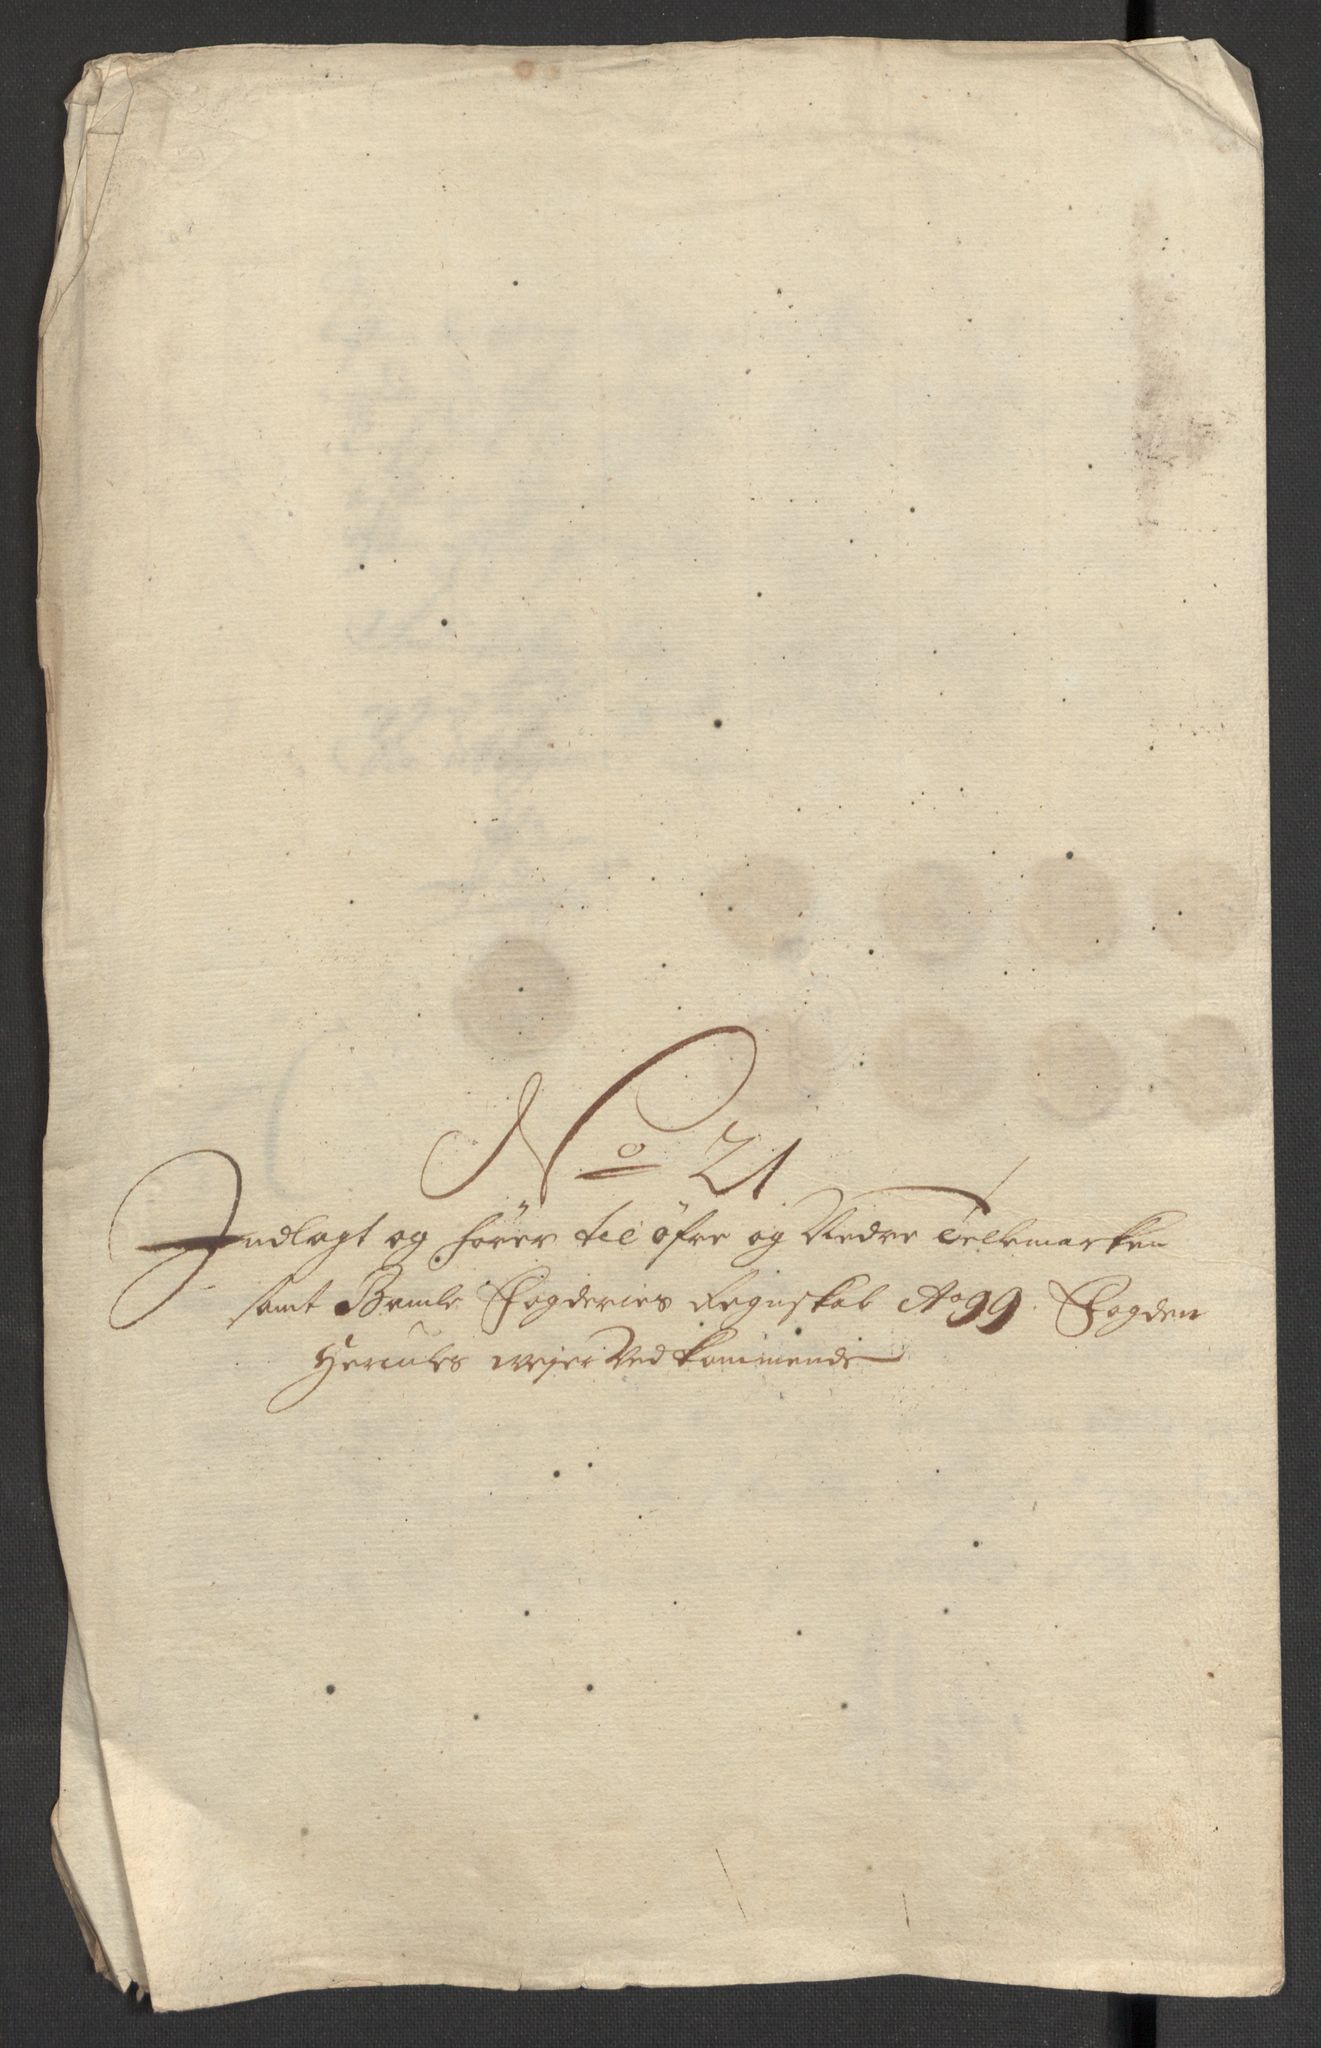 No 21
Indlagt og hører til øfre og Nedre Tellemarken
samt Bamble Fogderies Regnskab Ao 99. Fogden
Hercules Wejer Vedkommende